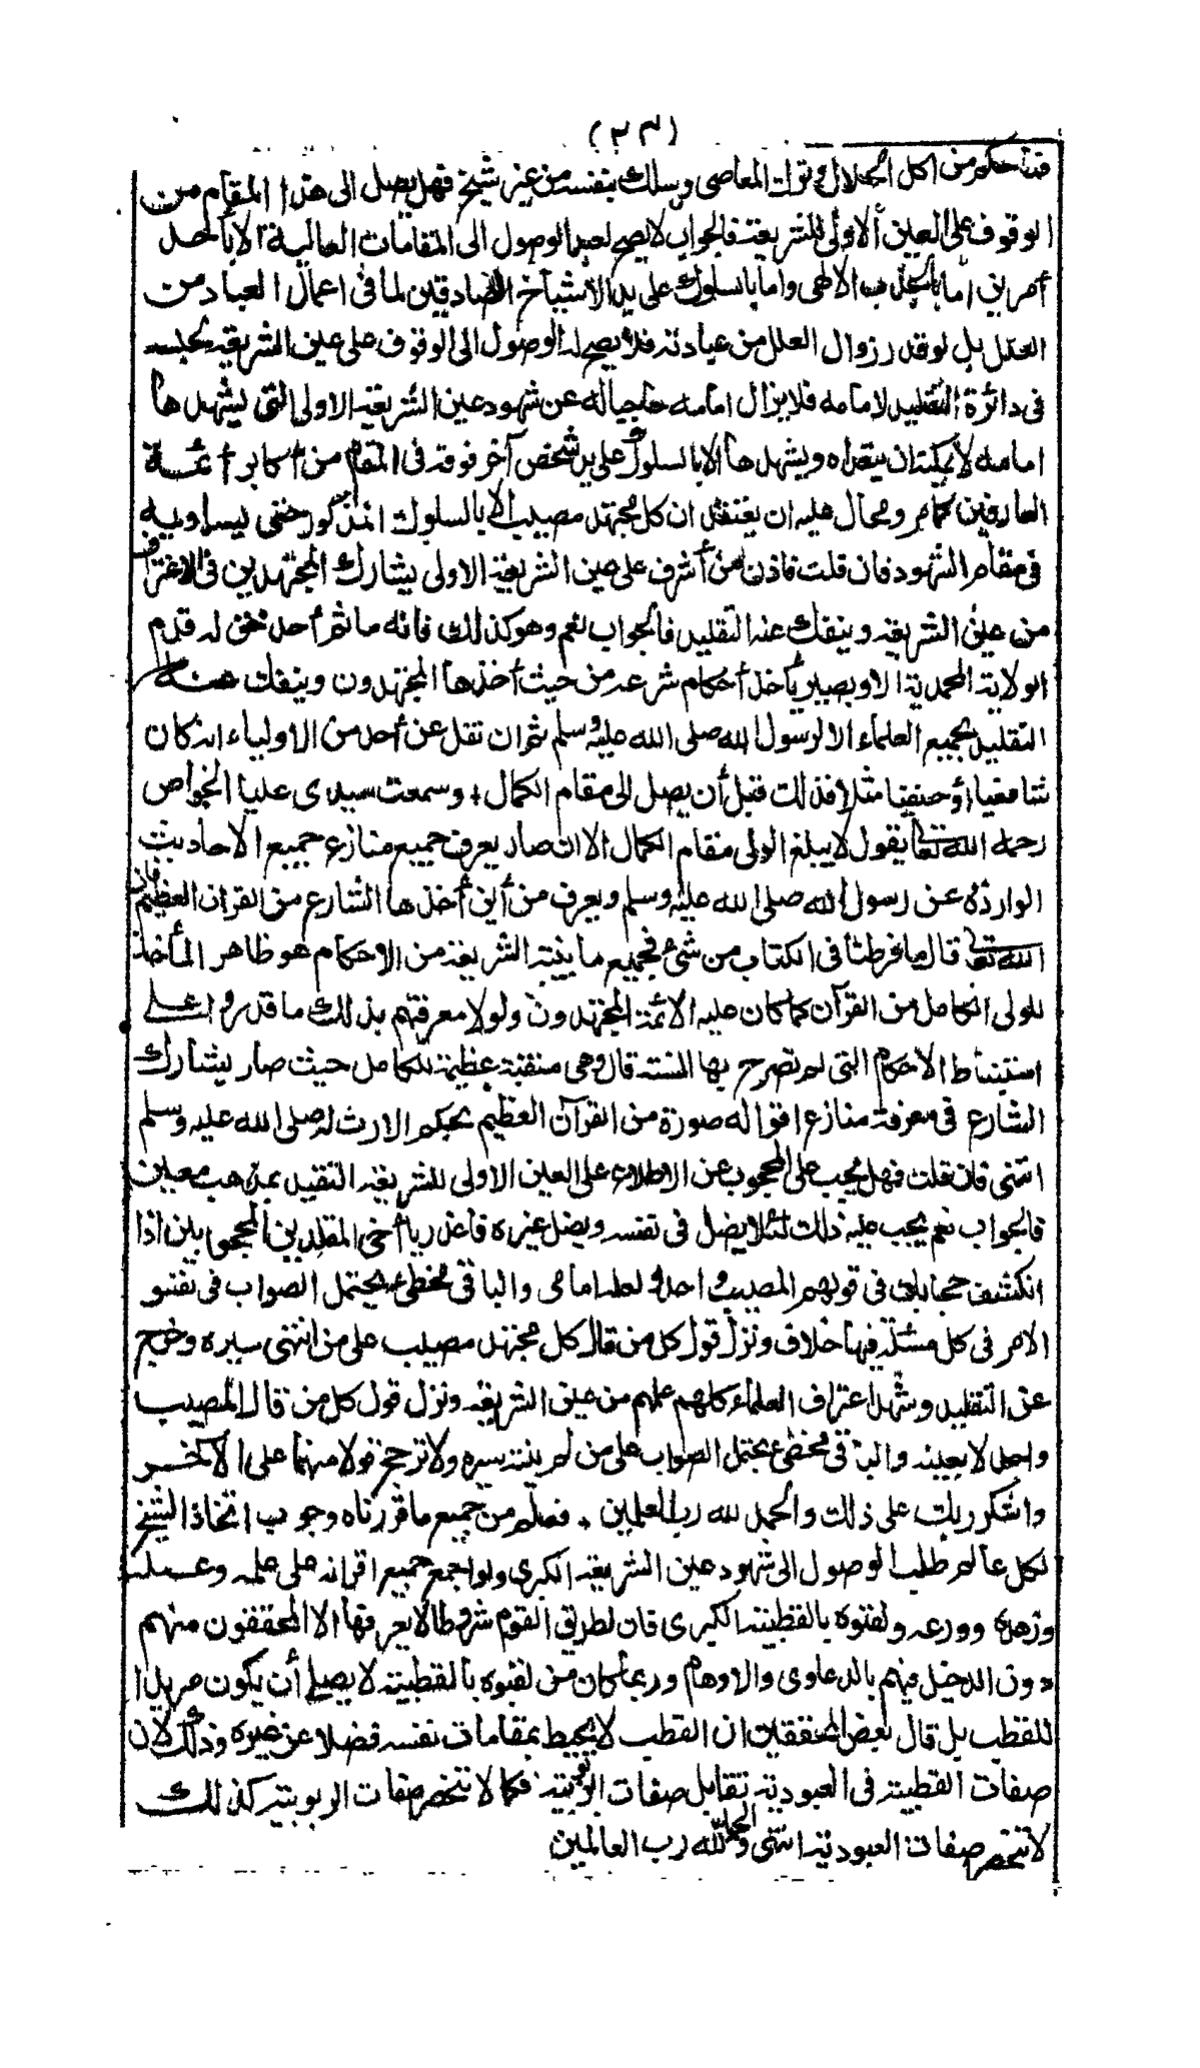 (٢٣)
قدنا حكم من اكل الحلال وترك المعاصى وسلك بنفسه من غير شيخ فهل يصل الى هذا المقام من
الوقوف على العين الاولى للشريعة فالجواب لا يصح لعبد الوصول الى المقامات العالية الا بأحد
أمرين اما بالجذب الالهى واما بالسلوك على يد الاشياخ الصادقين لما فى اعمال العباد من
العلل بل لو قدر زوال العلل من عبادته فلا يصح له الوصول الى الوقوف على عين الشريعة لحبسه
فى دائرة التقليد لامامه فلا يزال امامه حاجبا له عن شهود عين الشريعة الاولى التى يشهدها
امامه لا يمكنه ان يتعداه ويشهدها الا بالسلوك على يد شخص آخر فوقه فى المقام من أكابر أئمة
العارفين كما مر ومحال عليه ان يعتقد ان كل مجتهد مصيب الا بالسلوك المذكور حتى يساويه
فى مقام الشهود فان قلت فاذن من أشرف على عين الشريعة الاولى يشارك المجتهدين فى الاغتراف
من عين الشريعة وينفك عنه التقليد فالجواب نعم وهو كذلك فانه ما ثم أحد حق له قدم
الولاية المحمدية الا ويصير يأخذ أحكام شرعه من حيث أخذها المجتهدون وينفك عنه
التقليد لجميع العلماء الا لرسول الله صلى الله عليه وسلم ثم ان نقل عن أحد من الاولياء انه كان
شافعيا أو حنفيا مثلا فذلك قبل أن يصل الى مقام الكمال ٭ وسمعت سيدى عليا الخواص
رحمه الله تعالى يقول لا يبلغ الولى مقام الكمال الا ان صار يعرف جميع منازع جميع الاحاديث
الواردة عن رسول الله صلى الله عليه وسلم ويعرف من أين أخذها الشارع من القرآن العظيم فان
الله تعالى قال ما فرطنا فى الكتاب من شئ فجميع ما بينته الشريعة من الاحكام هو ظاهر المأخذ
للولى الكامل من القرآن كما كان عليه الائمة المجتهدون ولولا معرفتهم بذلك ما قدروا على
استنباط الاحكام التى لم تصرح بها السنة قال وهى منقبة عظيمة للكامل حيث صار يشارك
الشارع فى معرفة منازع اقواله صورة من القرآن العظيم بحكم الارث له صلى الله عليه وسلم
انتهى فان قلت فهل يجب على المحجوب عن الاطلاع على العين الاولى للشريعة التقييد بمذهب معين
فالجواب نعم يجب عليه ذلك لئلا يضل فى نفسه ويضل غيره فاعذر يا أخى المقلدين المحجوبين اذا
انكشف حجابك فى قولهم المصيب واحد ولعله امامى والباقى مخطئ يحتمل الصواب فى نفس
الامر فى كل مسئلة فيها خلاف ونزل قول كل من قال كل مجتهد مصيب على من انتهى سيره وخرج
عن التقليد وشهد اغتراف العلماء كلهم علمهم من عين الشريعة ونزل قول كل من قال المصيب
واحد لا بعينه والباقى مخطئ يحتمل الصواب على من لم ينته سيره ولا ترجح قولا منهما على الآخر
واشكر ربك على ذلك والحمد لله رب العلمين ٭ فعلم من جميع ما قررناه وجوب اتخاذ الشيخ
لكل عالم طلب الوصول الى شهود عين الشريعة الكبرى ولو اجمع جميع اقرانه على علمه وعمله
وزهده وورعه ولقبوه بالقطبية الكبرى فان لطريق القوم شروطا لا يعرفها الا المحققون منهم
دون الدخيل فيهم بالدعاوى والاوهام وربما كان من لقبوه بالقطبية لا يصلح أن يكون مريدا
للقطب بل قال بعض المحققين ان القطب لا يحيط بمقامات نفسه فضلا عن غيره وذلك لان
صفات القطبية فى العبودية تقابل صفات الربوبية فكما لا تنحصر صفات الربوبية كذلك
لا تنحصر صفات العبودية انتهى والحمد لله رب العالمين